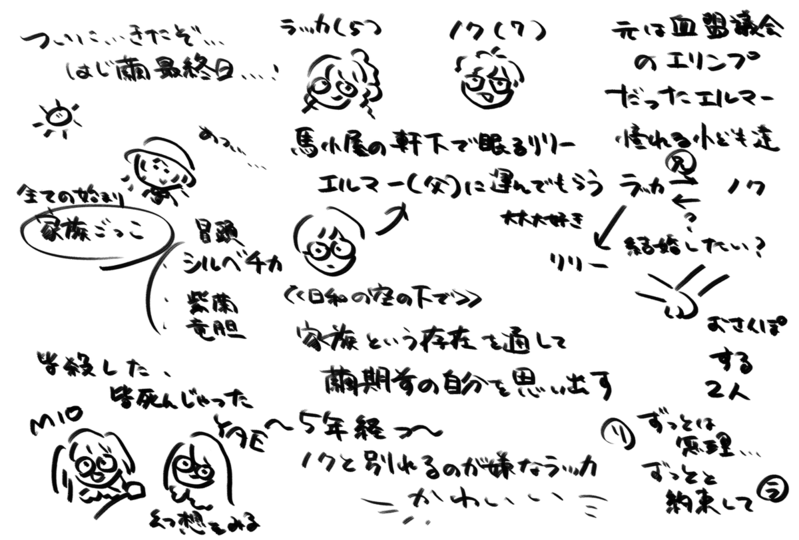 ついに、、きたぞ…
はじ繭最終日…!
ラッカ(5)
ノク(7)
馬小屋の軒下で眠るリリー
エルマー(父)に運んでもらう
元は血盟議会
のエリンプ
だったエルマー
憧れる小ども達
ラッカ
ノク
?
大大大好き
リリー
結婚したい?
全ての始まり
家族ごっこ
冒頭
・シルベチカ
・紫蘭
・竜胆
《日和の空の下で》
家族という存在を通して
繭期前の自分を思い出す
おさんぽ
する
2人
皆殺した、
皆死んじゃった
MIO
YAE
幻想をみる
〜5年経つ〜
ノクと別れるのが嫌なラッカ
かわいい
リ
ずっとは
無理…
ずっとと
約束して
ラ